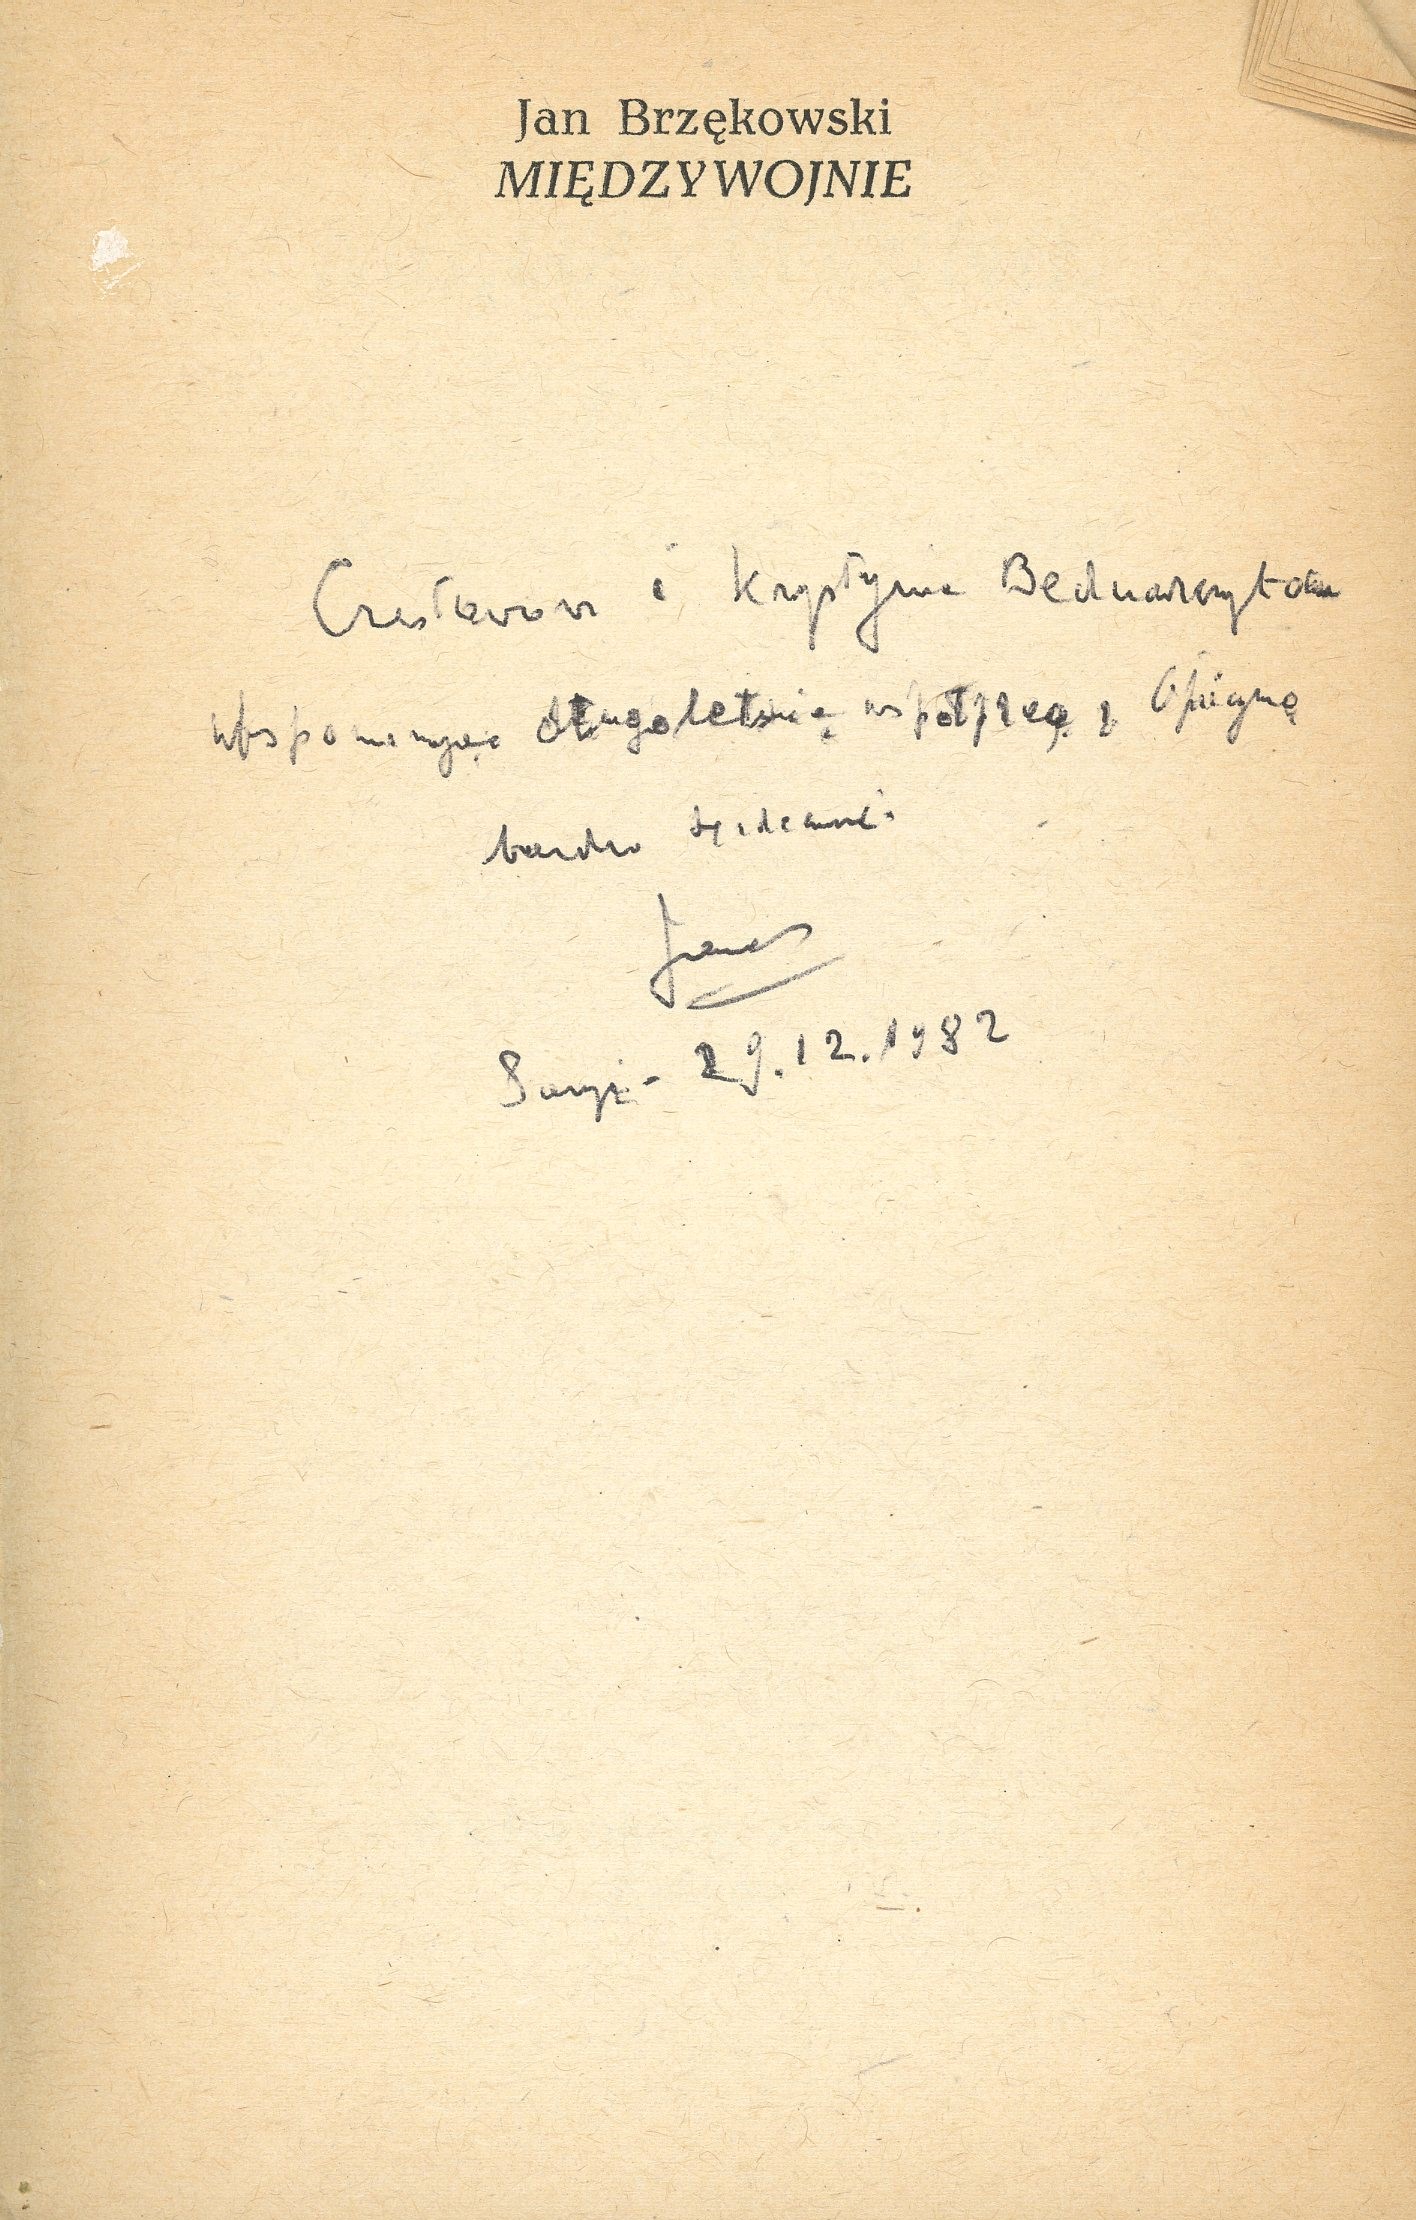 Jan Brzękowski
MIĘDZYWOJNIE
Czesławowi i Krystynie Bednarczykom
wspominając długoletnią współpracę z Oficyną
bardzo serdecznie
Paryż - 29.12.1982